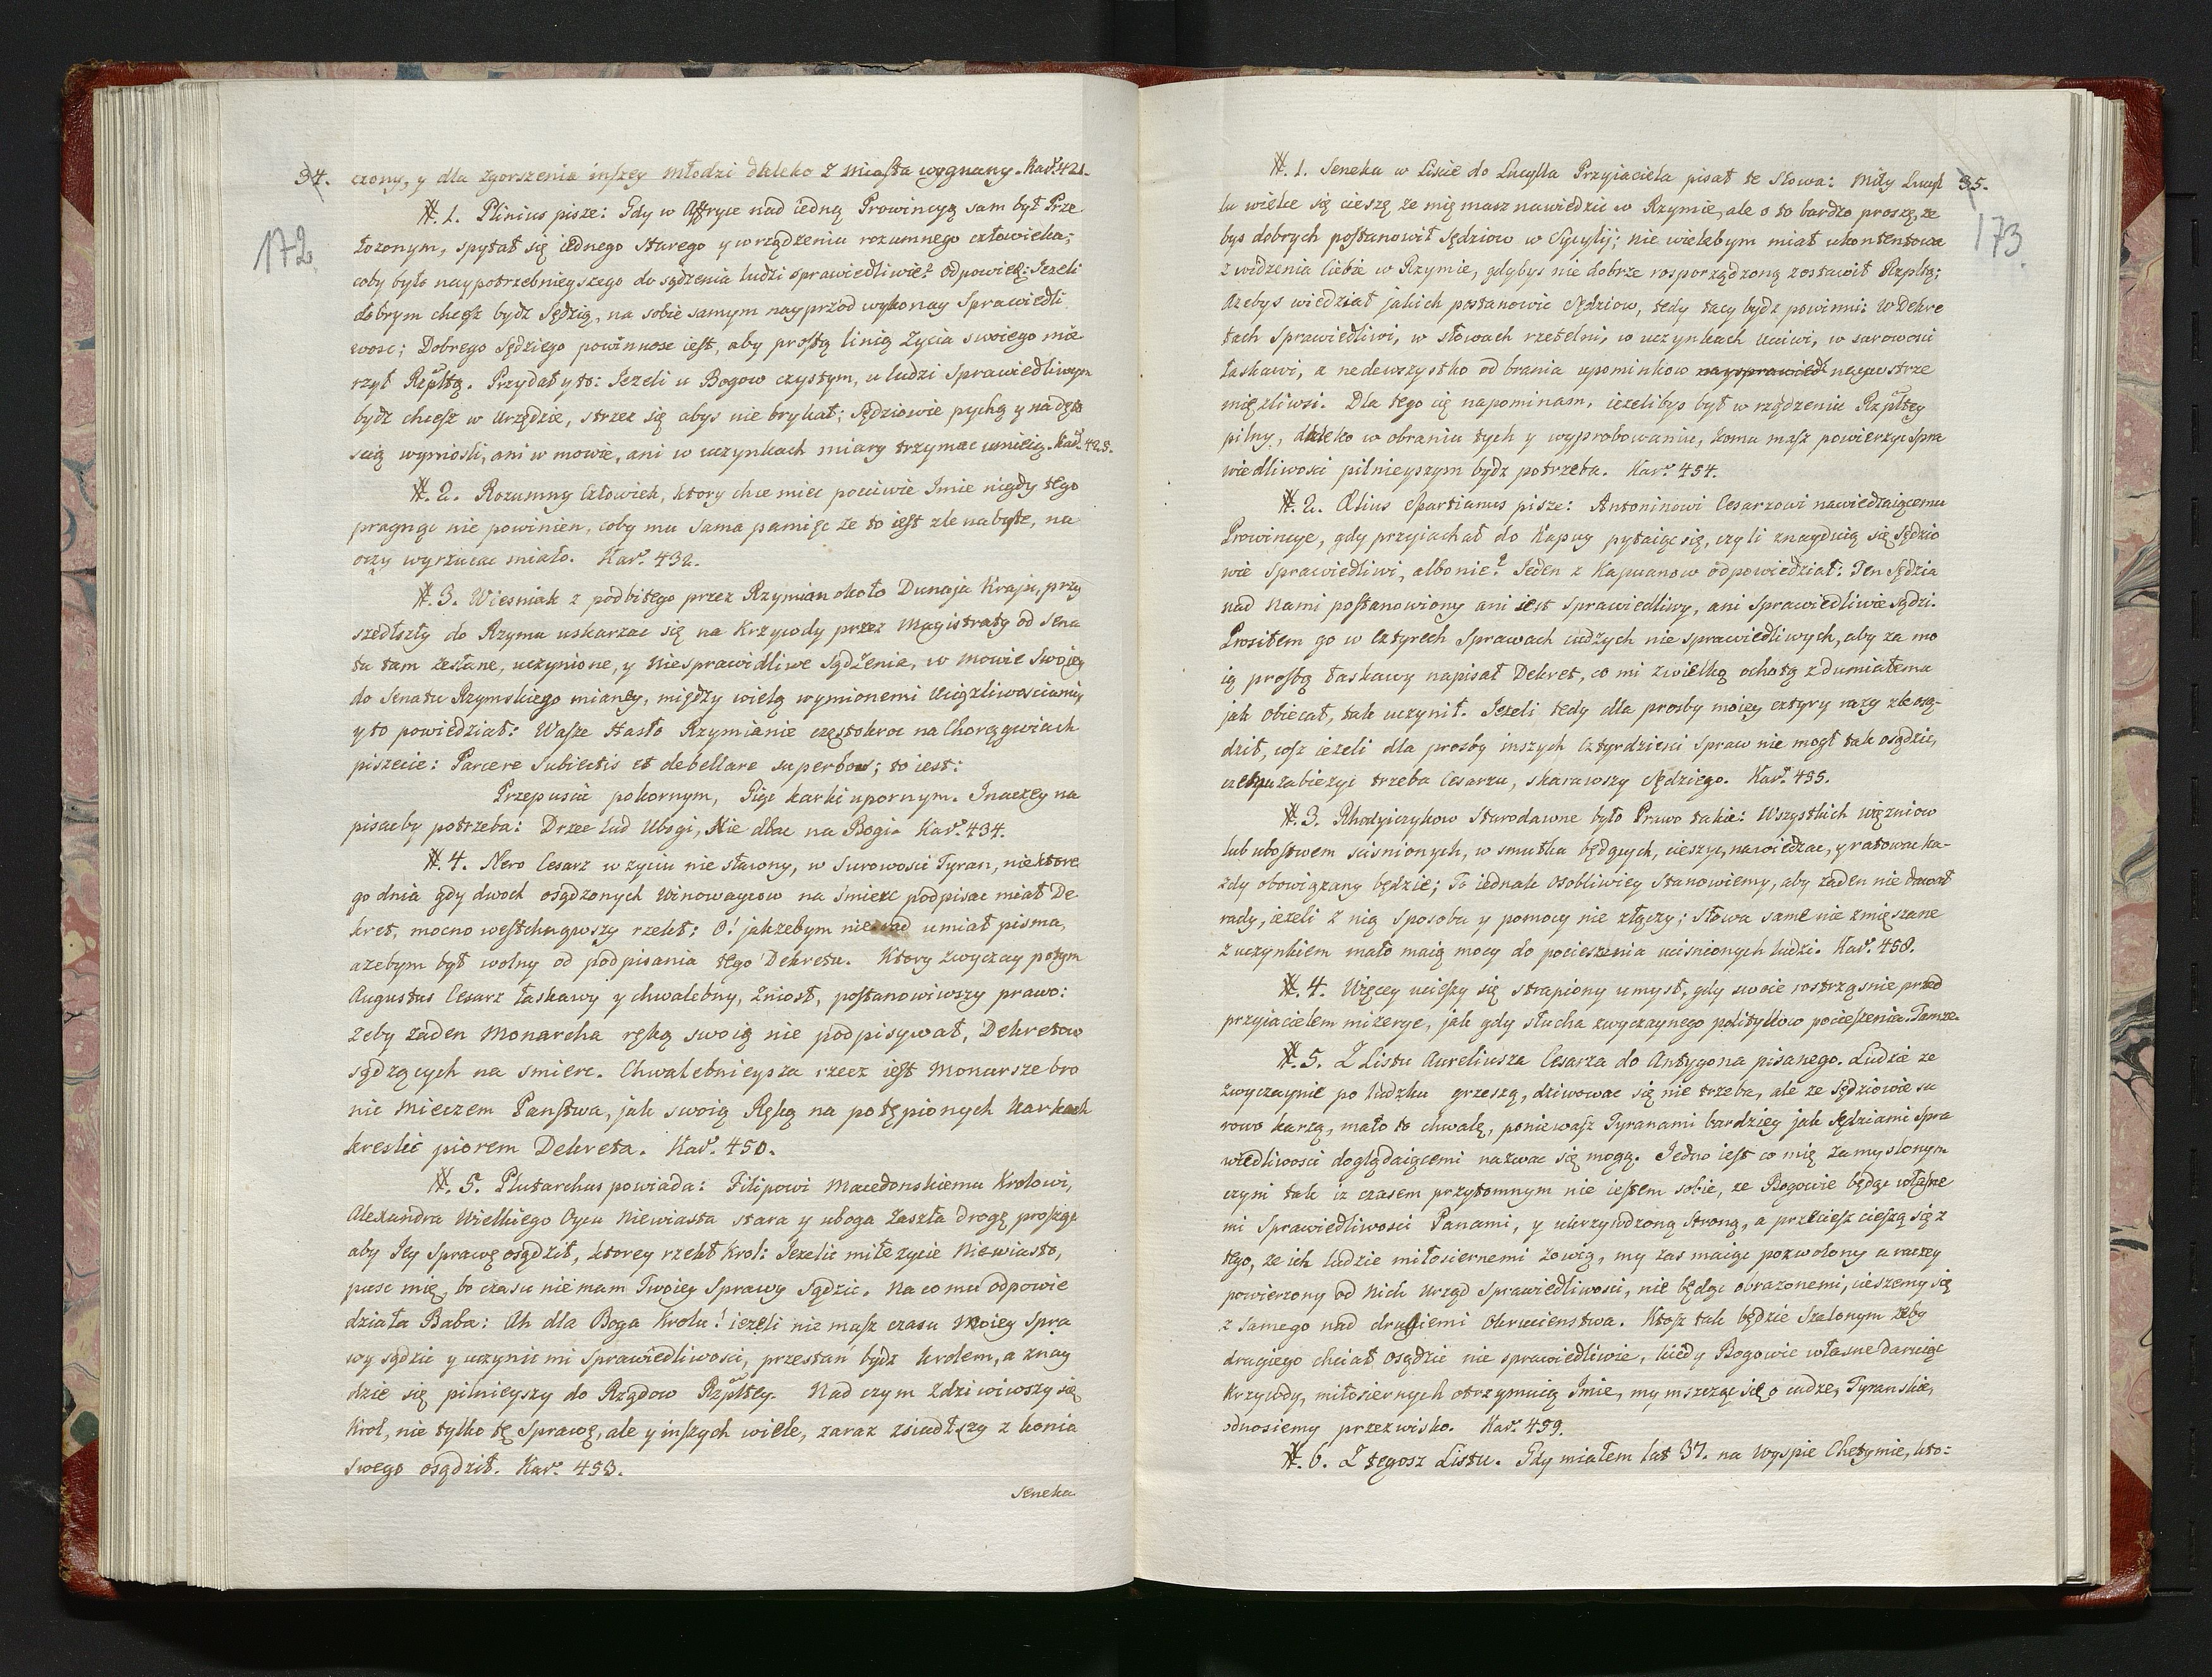 34. czony, y dla zgorszenia inszey Młodzi daleko z Miasta wygnany. Kar. 421.
172
#. 1. Plinius pisze: Gdy w Affryce nad iedną Prowincyą sam był Prze
łozonym, spytał się iednego Starego y w rządzeniu rozumnego człowieka;
coby było naypotrzebnieyszego do sądzenia ludzi sprawiedliwie? odpowie: Jezeli
dobrym chcesz bydz Sędzią, na sobie samym nayprzod wykonay Sprawiedli
wosc; Dobrego Sędziego powinnosc iest, aby prostą linią Zycia swoiego mie
rzył Rzpltą. Przydał y to: Jezeli u Bogow czystym, u ludzi Sprawiedliwym
bydz chcesz w Urzędzie, strzez się abys nie brykał; Sędziowie pychą y nadęto
scią wyniosli, ani w mowie, ani w uczynkach miary trzymac umieią. Kar. 423.
#. 2. Rozumny Człowiek, ktory chce miec poczciwe Imie nigdy tego
pragnąc nie powinien, coby mu sama pamięc ze to iest zle nabyte, na
oczy wyrzucac miało. Kar. 432.
#. 3. Wiesniak z podbitego przez Rzymian około Dunaja Kraju, przy
szedłszy do Rzymu uskarzac się na Krzywdy przez Magistraty od Sena
tu tam zesłane, uczynione, y niesprawidliwe Sądzenia, w mowie Swoiey
do Senatu Rzymskiego mianey, między wielą wymionemi Uciązliwosciami,
y to powiedział: Wasze Hasło Rzymianie częstokroc na Chorągwiach
piszecie: Parcere Subiectis et debellare superbos; to iest:
Przepuscic pokornym, Tige karki upornym. Inaczey na
pisacby potrzeba: Drzec lud Ubogi, Nie dbac na Bogi. Kar. 434.
#. 4. Nero Cesarz w zyciu nie sławny, w Surowosci Tyran, niektore
go dnia gdy dwoch osądzonych Winowaycow na smierc podpisac miał De
kret, mocno westchnąwszy rzekł: O! jakzebym nierad umiał pisma,
azebym był wolny od podpisania tego Dekretu. Ktory Zwyczay potym
Augustus Cesarz łaskawy y chwalebny, Zniosł, postanowiwszy prawo:
Zeby zaden Monarcha ręką swoią nie podpisywał, Dekretow
sądzących na smierc. Chwalebnieysza rzecz iest Monarsze bro
nic Mieczem Panstwa, jak swoią Ręką na potępionych karkach
kreslic piorem Dekreta. Kar. 450.
#. 5. Plutarchus powiada: Filipowi Macedonskiemu Krolowi,
Alexandra Wielkiego Oycu Niewiasta stara y uboga Zaszła drogę, prosząc
aby Jey Sprawę osądził, ktorey rzekł Krol: Jezelic miłe zycie Niewiasto,
pusc mię, bo czasu nie mam Twoiey Sprawy sądzic. Na co mu odpowie
działa Baba: Ah dla Boga Krolu! iezeli nie masz czasu Moiey Spra
wy sądzic y uczynic mi Sprawiedliwosci, przestań bydz Krolem, a znay
dzie się pilnieyszy do Rządow Rzpltey. Nad czym Zdziwiwszy się
Krol, nie tylko tę Sprawę, ale y inszych wiele, zaraz zsiadłszy z konia
swego osądził. Kar. 453.
Seneka
35.
173.
#. 1. Seneka w Liscie do Lucylla Przyiaciela pisał te Słowa: Miły Lucyl
lu wielce się cieszę ze mię masz nawiedzic w Rzymie, ale o to bardzo proszę, ze
bys dobrych postanowił Sędziow w Sycylij; nie wielebym miał ukontentowa
z widzenia Ciebie w Rzymie, gdybys nie dobrze rosporządzoną zostawił Rzpltą;
Azebys wiedział jakich postanowic Sędziow, tedy tacy bydz powinni: W Dekre
tach Sprawiedliwi, w słowach rzetelni, w uczynkach uczciwi, w surowosci
łaskawi, a nedewszystko od brania upominkow naysprawiedl naywstrze
mięzliwsi. Dla tego cię napominam, iezelibys był w rządzeniu Rzpltey
pilny, daleko w obraniu tych y wyprobowaniu, komu masz powierzyc Spra
wiedliwosci pilnieyszym bydz potrzeba. Kar. 454.
#. 2. Ælius Spartianus pisze: Antoninowi Cesarzowi nawiedzaiącemu
Prowincye, gdy przyiachał do Kapuy pytaiąc się, czyli znayduią się Sędzio
wie Sprawiedliwi, albo nie? Jeden z Kapuanow odpowiedział: Ten Sędzia
nad Nami postanowiony ani iest Sprawiedliwy, ani Sprawiedliwie sądzi.
Prosiłem go w Cztyrech Sprawach cudzych nie sprawiedliwych, aby za mo
ią prosbą łaskawy napisał Dekret, co mi z wielką ochotą zdumiałemu
jak obiecał, tak uczynił. Jezeli tedy dla prosby moiey cztyry razy zle osą-
dził, cosz iezeli dla prosby inszych Cztyrdziesci Spraw nie mogł tak osądzic,
czemu zabiezyc trzeba Cesarzu, skarawszy Sędziego. Kar. 455.
#. 3. Rhodyiczykow Starodawne było Prawo takie: Wszystkich więzniow
lub ubostwem scisnionych, w smutku będących, cieszyc, nawiedzac, y ratowac ka-
zdy obowiązany będzie; To iednak osobliwiey Stanowiemy, aby zaden nie dawał
rady, iezeli z nią sposobu y pomocy nie złączy; słowa same nie zmięszane
z uczynkiem mało maią mocy do pocieszenia ucisnionych ludzi. Kar. 458.
#. 4. Więcey ucieszy się strapiony umysł, gdy swoie rostrząsnie przed
przyiacielem mizerye, jak gdy słucha zwyczaynego politykow pocieszenia. Tamze.
#. 5. Z Listu Aureliusza Cesarza do Antygona pisanego. Ludzie ze
zwyczaynie po ludzku grzeszą, dziwowac się nie trzeba, ale ze Sędziowie su
rowo karzą, mało to chwalę, poniewasz Tyranami bardziey jak Sędziami Spra
wiedliwosci doglądaiącemi nazwac się mogą. Jedno iest co mię Zamyslonym
czyni tak iz czasem przytomnym nie iestem sobie, ze Bogowie będąc własne
mi Sprawiedliwosci Panami, y ukrzywdzoną Stroną, a przeciesz cieszą się z
tego, ze ich ludzie miłosiernemi Zowią, my zas maiąc pozwolony a raczey
powierzony od Nich Urząd Sprawiedliwosci, nie będąc obrazonemi, cieszemy się
z Samego nad drugiemi Okrucienstwa. Ktosz tak będzie Szalonym zeby
drugiego chciał osądzic nie sprawiedliwie, kiedy Bogowie własne daruiąc
Krzywdy, miłosiernych otrzymuią Imie, my mszcząc się o cudze, Tyranskie,
odnosiemy przezwisko. Kar. 459.
#. 6. Z tegosz Listu. Gdy miałem lat 37. na Wyspie Chetymie, kto: